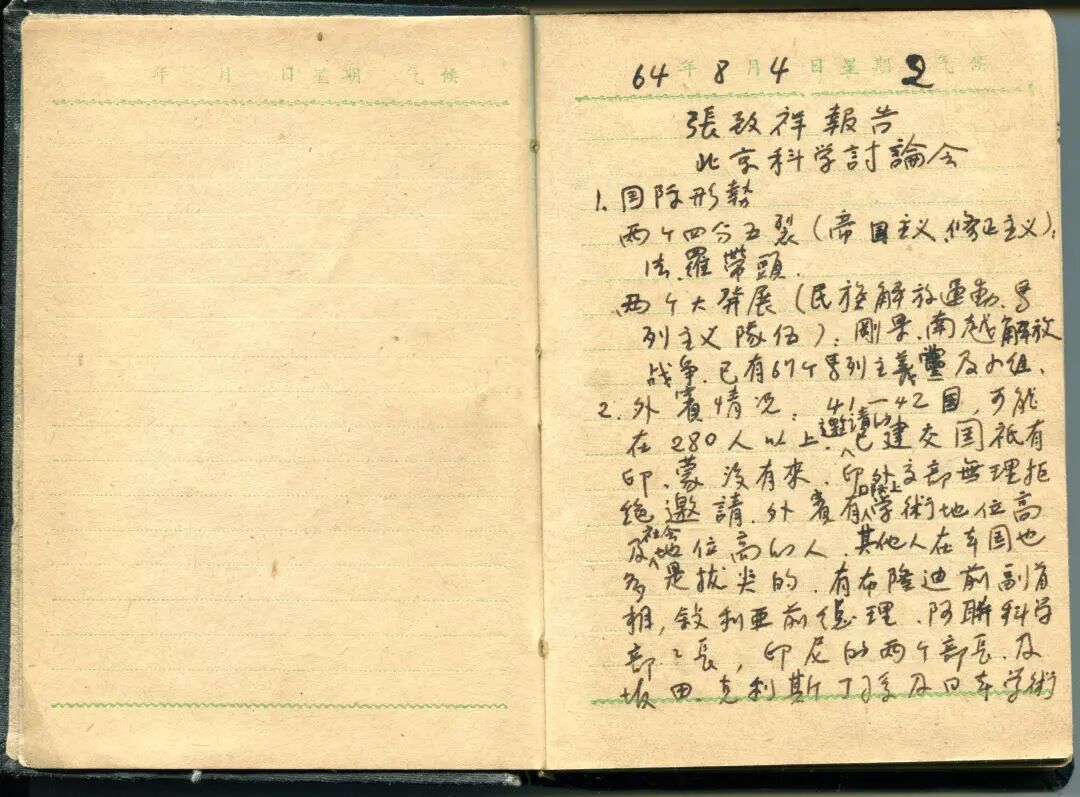 年 月 日 星期 气候
64年8月4日星期2气候
張致祥報告
北京科学討論会
1. 国际形勢
两个四分五裂(帝国主义、修正主义):
法、羅带頭.
两个大發展(民族解放运動、馬
列主义隊伍): 剛果、南越解放
战争. 已有67个馬列主義黨及小組.
2. 外賓情况: 41—42国, 可能
在280人以上. 邀請的已建交国祗有
印、蒙没有來. 印外交部無理拒
绝邀請. 外賓有学術地位高
及社会地位高的人. 其他人在本国也
多是拔尖的. 有布隆迪前副首
相, 敘利亚前總理. 阿聯科学
部部長, 印尼的两个部長. 及
坂田. 克利斯丁孫及日本学術